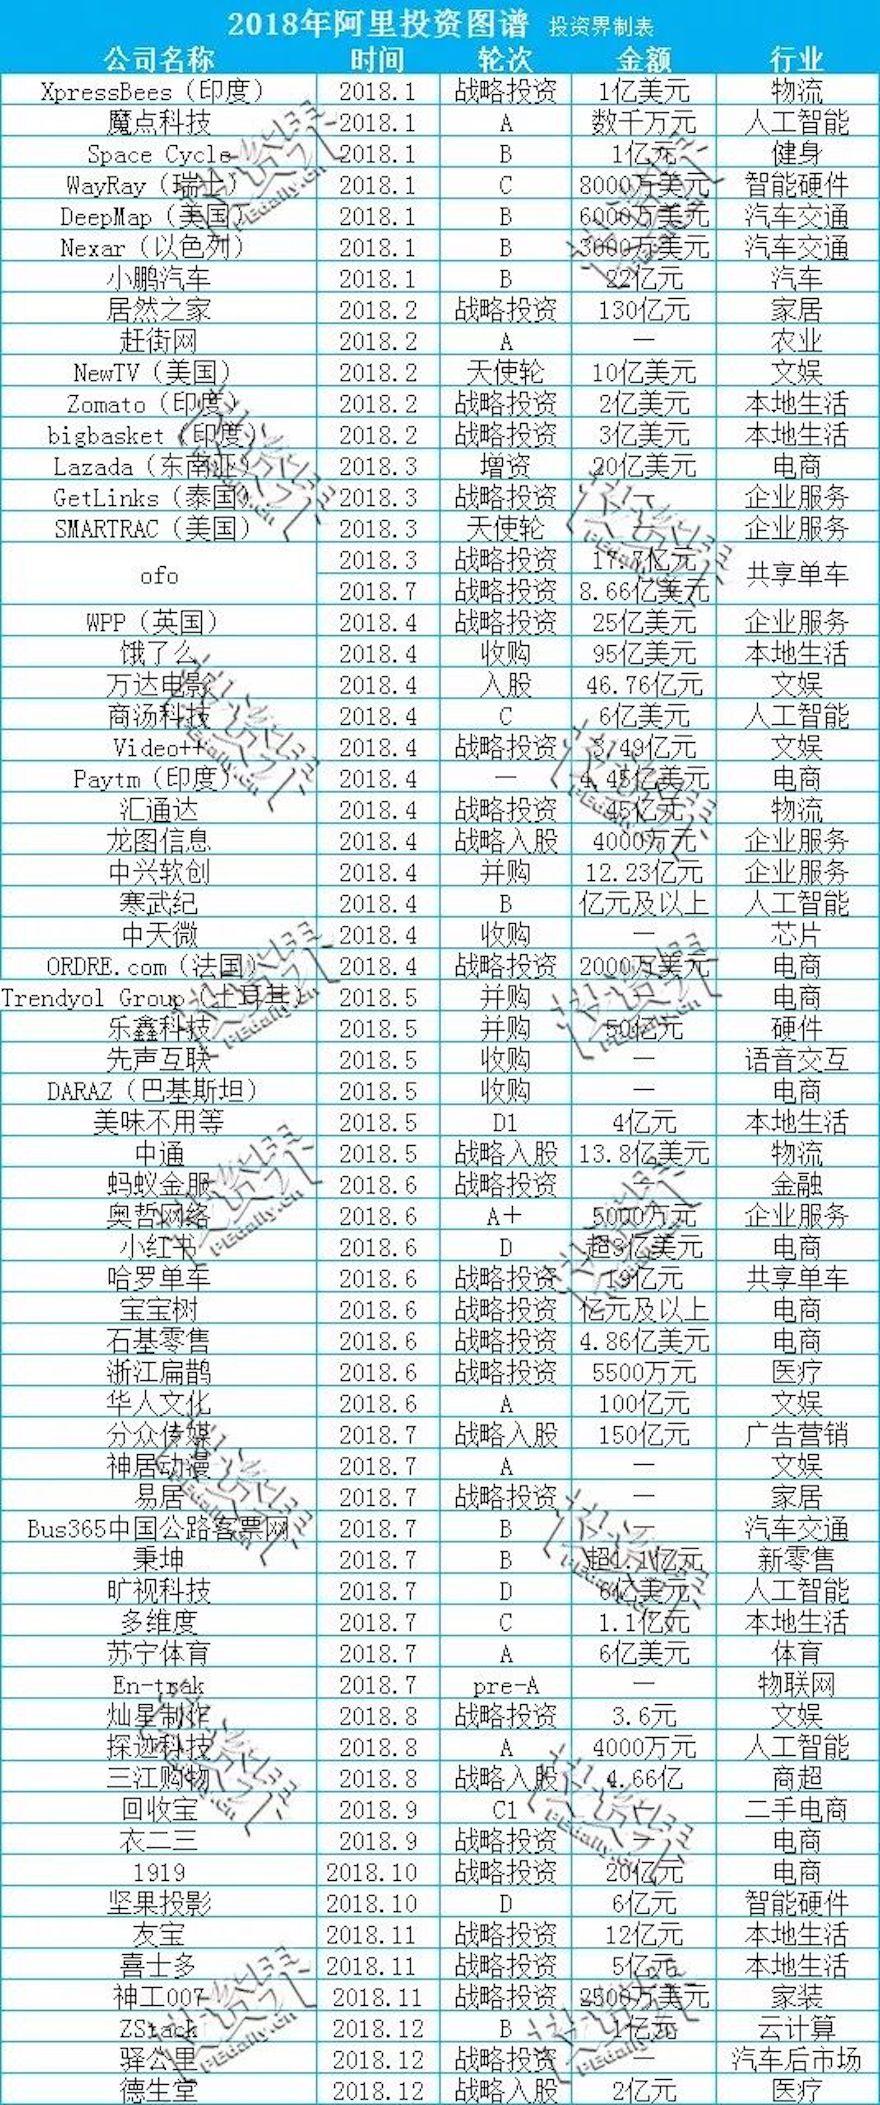 2018年阿里投资图谱 投资界制表
公司名称 时间 轮次 金额 行业
XpressBees（印度） 2018.1 战略投资 1亿美元 物流
魔点科技 2018.1 A 数千万元 人工智能
Space Cycle 2018.1 B 1亿元 健身
WayRay（瑞士） 2018.1 C 8000万美元 智能硬件
DeepMap（美国） 2018.1 B 6000万美元 汽车交通
Nexar（以色列） 2018.1 B 3000万美元 汽车交通
小鹏汽车 2018.1 B 22亿元 汽车
居然之家 2018.2 战略投资 130亿元 家居
赶街网 2018.2 A — 农业
NewTV（美国） 2018.2 天使轮 10亿美元 文娱
Zomato（印度） 2018.2 战略投资 2亿美元 本地生活
bigbasket（印度） 2018.2 战略投资 3亿美元 本地生活
Lazada（东南亚） 2018.3 增资 20亿美元 电商
GetLinks（泰国） 2018.3 战略投资 — 企业服务
SMARTRAC（美国） 2018.3 天使轮 — 企业服务
ofo 2018.3 战略投资 17.7亿元 共享单车
2018.7 战略投资 8.66亿美元
WPP（英国） 2018.4 战略投资 25亿美元 企业服务
饿了么 2018.4 收购 95亿美元 本地生活
万达电影 2018.4 入股 46.76亿元 文娱
商汤科技 2018.4 C 6亿美元 人工智能
Video++ 2018.4 战略投资 文娱
Paytm（印度） 2018.4 — 4.45亿美元 电商
汇通达 2018.4 战略投资 45亿元 物流
龙图信息 2018.4 战略入股 4000万元 企业服务
中兴软创 2018.4 并购 12.23亿元 企业服务
寒武纪 2018.4 B 亿元及以上 人工智能
中天微 2018.4 收购 — 芯片
ORDRE.com（法国） 2018.4 战略投资 2000万美元 电商
Trendyol Group（土耳其） 2018.5 并购 — 电商
乐鑫科技 2018.5 并购 50亿元 硬件
先声互联 2018.5 收购 — 语音交互
DARAZ（巴基斯坦） 2018.5 收购 — 电商
美味不用等 2018.5 D1 4亿元 本地生活
中通 2018.5 战略入股 13.8亿美元 物流
蚂蚁金服 2018.6 战略投资 — 金融
奥哲网络 2018.6 A+ 5000万元 企业服务
小红书 2018.6 D 超3亿美元 电商
哈罗单车 2018.6 战略投资 19亿元 共享单车
宝宝树 2018.6 战略投资 亿元及以上 电商
石基零售 2018.6 战略投资 4.86亿美元 电商
浙江扁鹊 2018.6 战略投资 5500万元 医疗
华人文化 2018.6 A 100亿元 文娱
分众传媒 2018.7 战略入股 150亿元 广告营销
神居动漫 2018.7 A — 文娱
易居 2018.7 战略投资 — 家居
Bus365中国公路客票网 2018.7 B — 汽车交通
秉坤 2018.7 B 超1.1亿元 新零售
旷视科技 2018.7 D 6亿美元 人工智能
多维度 2018.7 C 1.1亿元 本地生活
苏宁体育 2018.7 A 6亿美元 体育
En-trak 2018.7 pre-A — 物联网
灿星制作 2018.8 战略投资 3.6元 文娱
探迹科技 2018.8 A 4000万元 人工智能
三江购物 2018.8 战略入股 4.66亿 商超
回收宝 2018.9 C1 — 二手电商
衣二三 2018.9 战略投资 — 电商
1919 2018.10 战略投资 20亿元 电商
坚果投影 2018.10 D 6亿元 智能硬件
友宝 2018.11 战略投资 12亿元 本地生活
喜士多 2018.11 战略投资 5亿元 本地生活
神工007 2018.11 战略投资 2500万美元 家装
ZStack 2018.12 B 1亿元 云计算
驿公里 2018.12 战略投资 — 汽车后市场
德生堂 2018.12 战略入股 2亿元 医疗